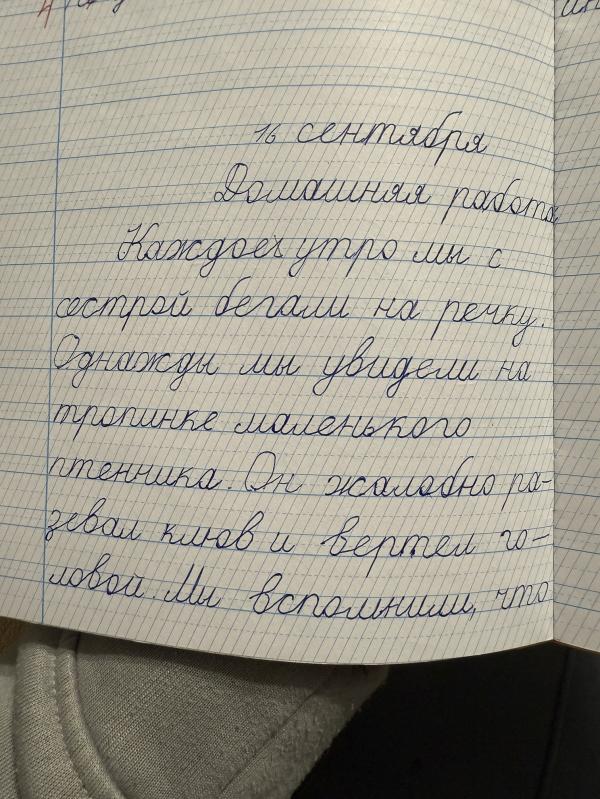 16 сентября
Домашняя работа
Каждое утро мы с
сестрой бегали на речку.
Однажды мы увидели на
тропинке маленького
птенчика. Он жалобно ра-
зевал клюв и вертел го-
ловой. Мы вспомнили, что